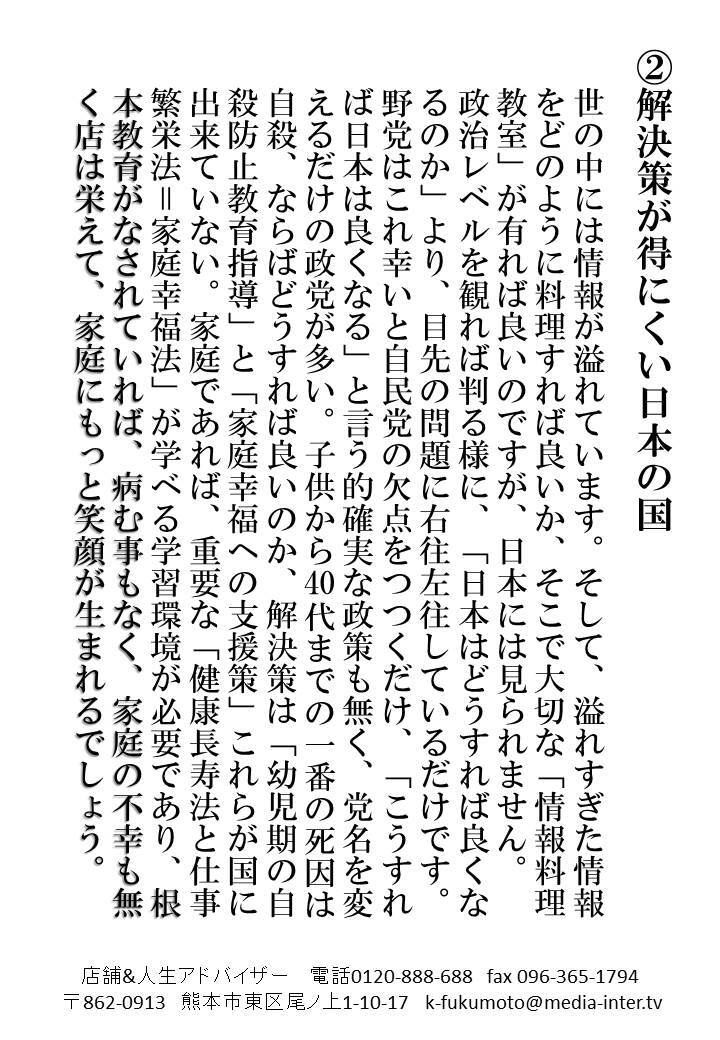 ②解決策が得にくい日本の国
世の中には情報が溢れています。そして、溢れすぎた情報
をどのように料理すれば良いか、そこで大切な「情報料理
教室」が有れば良いのですが、日本には見られません。
政治レベルを観れば判る様に、「日本はどうすれば良くな
るのか」より、目先の問題に右往左往しているだけです。
野党はこれ幸いと自民党の欠点をつつくだけ、「こうすれ
ば日本は良くなる」と言う的確実な政策も無く、党名を変
えるだけの政党が多い。子供から40代までの一番の死因は
自殺、ならばどうすれば良いのか、解決策は「幼児期の自
殺防止教育指導」と「家庭幸福への支援策」これらが国に
出来ていない。家庭であれば、重要な「健康長寿法と仕事
繁栄法＝家庭幸福法」が学べる学習環境が必要であり、根
本教育がなされていれば、病む事もなく、家庭の不幸も無
く店は栄えて、家庭にもっと笑顔が生まれるでしょう。
店舗&人生アドバイザー　電話0120-888-688 fax 096-365-1794
〒862-0913 熊本市東区尾ノ上1-10-17 k-fukumoto@media-inter.tv